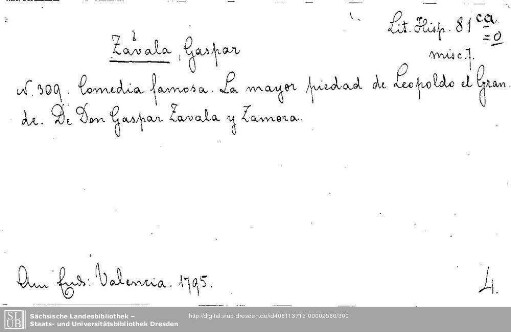 Lit. Hisp. 81 ca
=0
misc. 7.
Zavala, Gaspar
N. 309. Comedia famosa. La mayor piedad de Leopoldo el Gran.
de. De Don Gaspar Zavala y Zamora.
Am End: Valencia. 1795.
4.
SLUB
Sächsische Landesbibliothek –
Staats- und Universitätsbibliothek Dresden